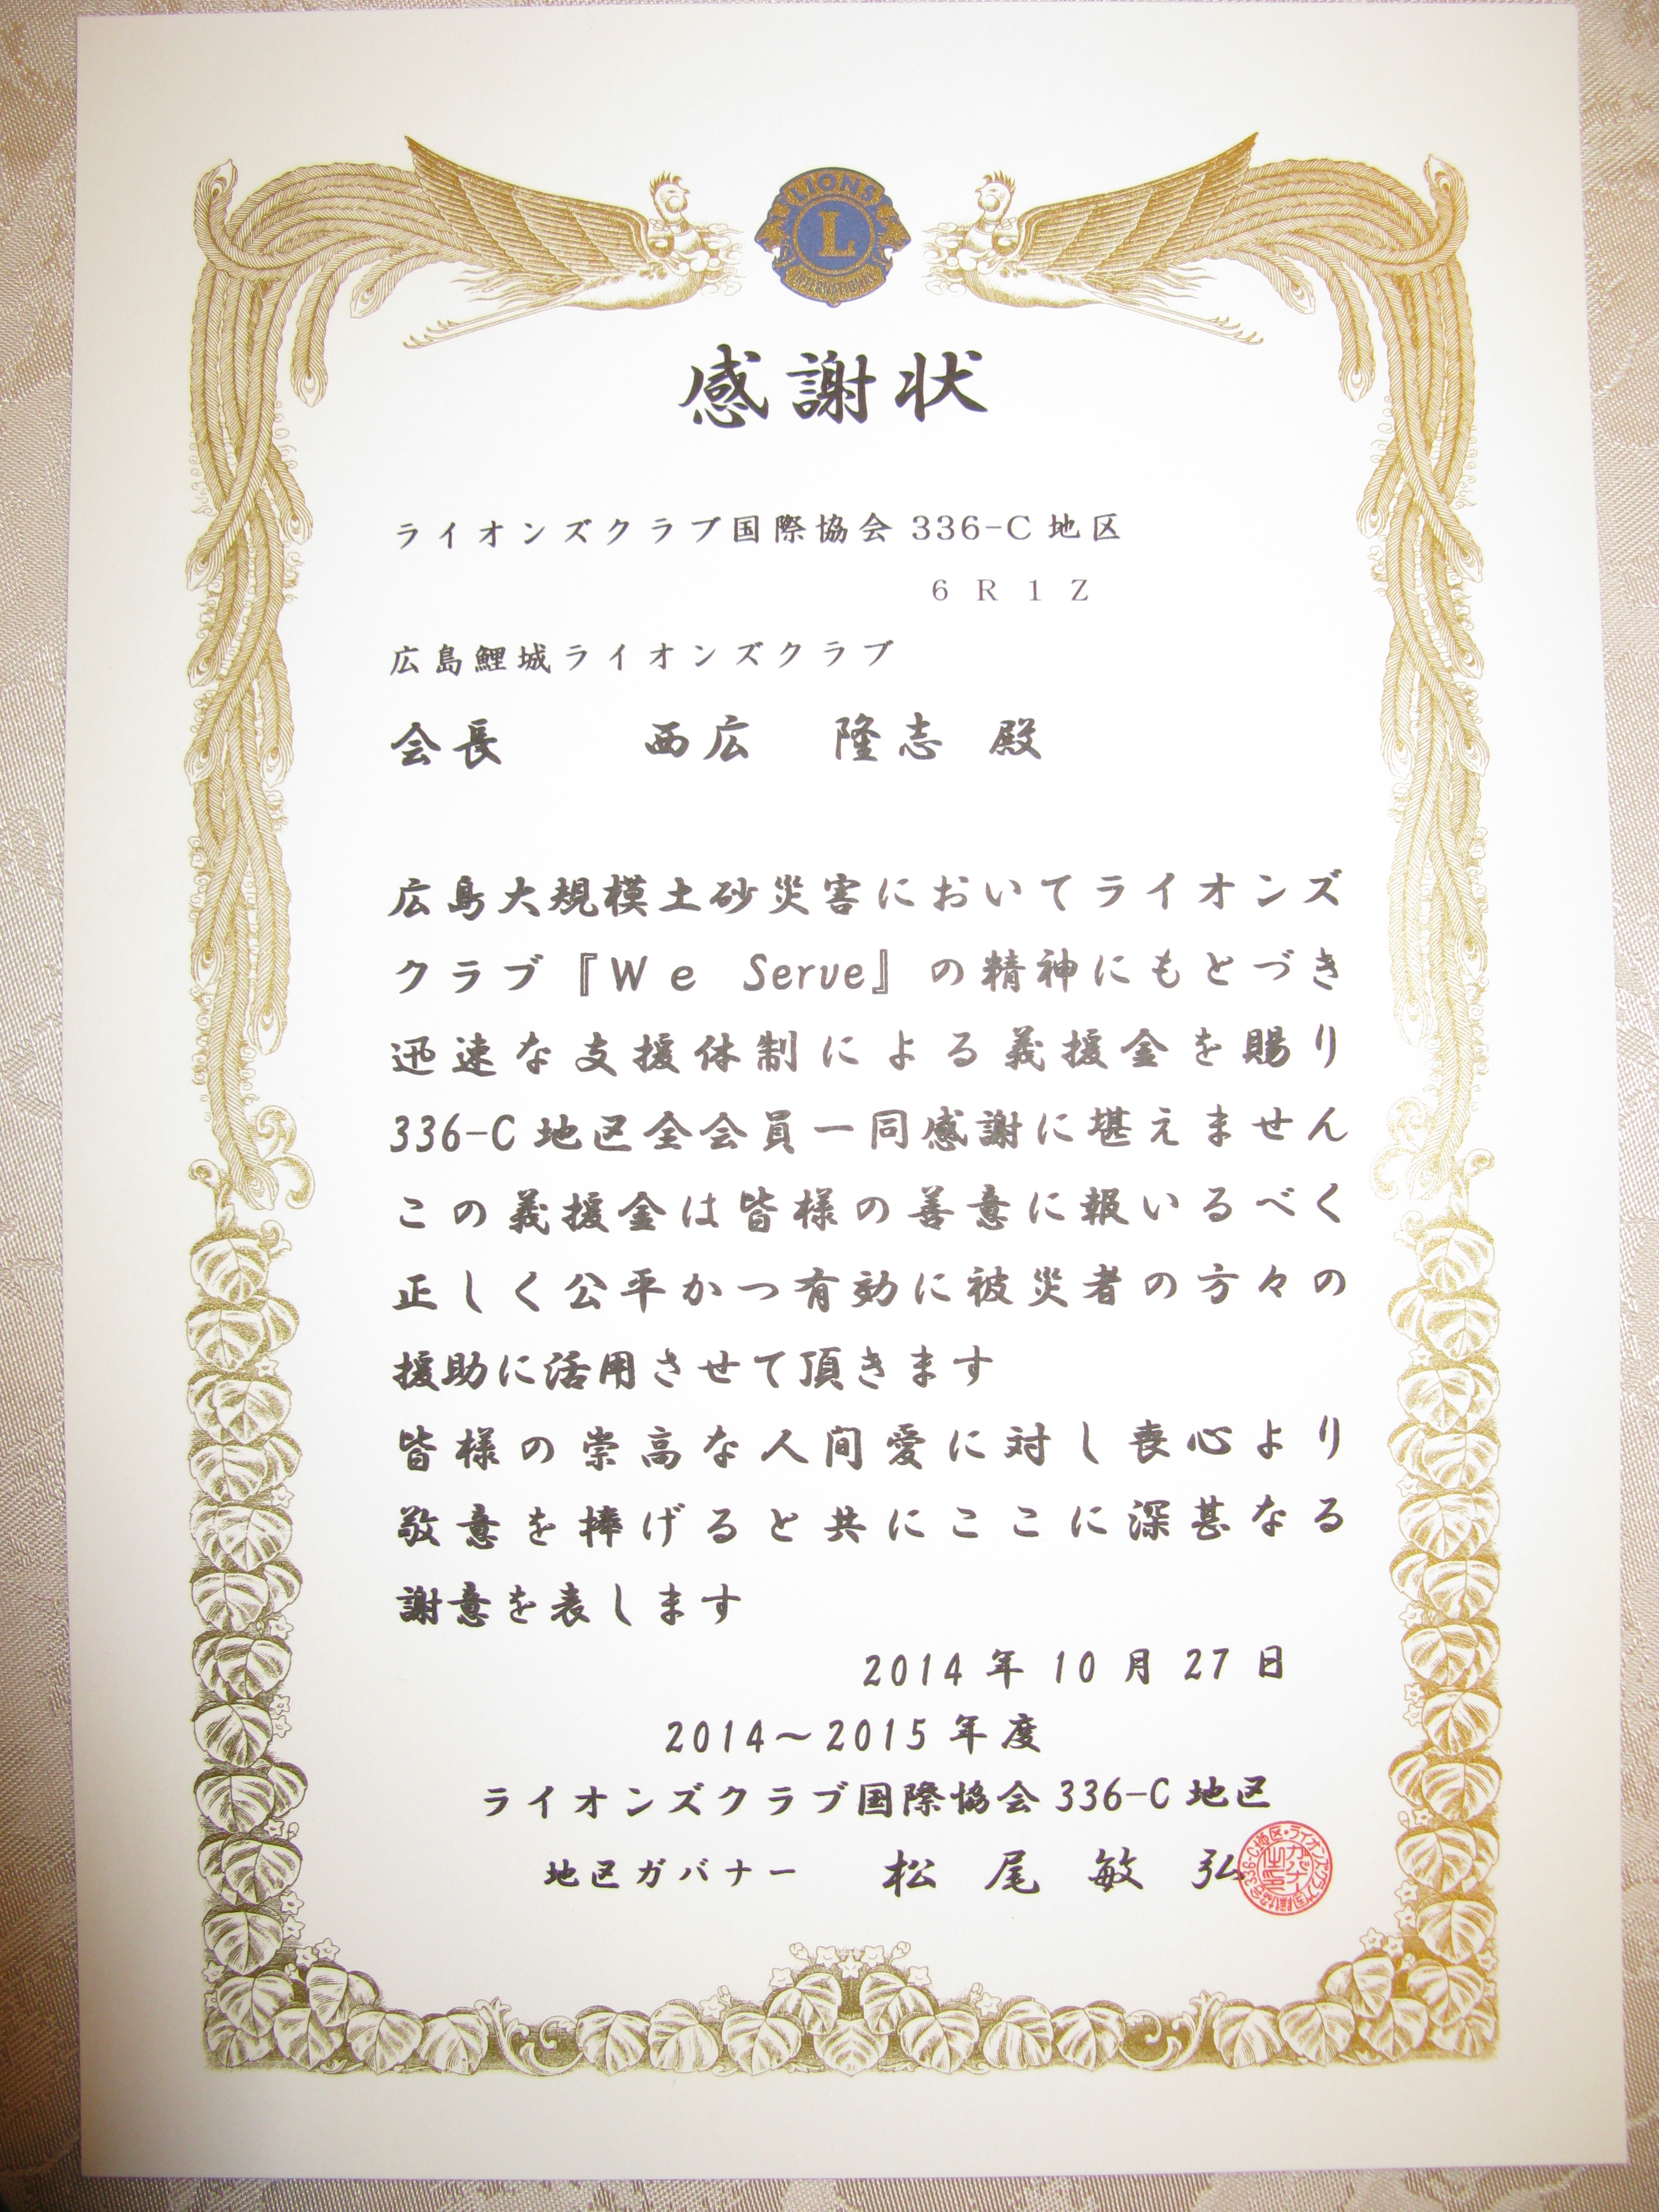 LIONS
L
INTERNATIONAL
感謝状
ライオンズクラブ国際協会 336-C 地区
6 R 1 Z
広島鯉城ライオンズクラブ
会長 西広 隆志 殿
広島大規模土砂災害においてライオンズ
クラブ『We Serve』の精神にもとづき
迅速な支援体制による義援金を賜り
336-C 地区全会員一同感謝に堪えません
この義援金は皆様の善意に報いるべく
正しく公平かつ有効に被災者の方々の
援助に活用させて頂きます
皆様の崇高な人間愛に対し衷心より
敬意を捧げると共にここに深甚なる
謝意を表します
2014 年 10 月 27 日
2014~2015 年度
ライオンズクラブ国際協会 336-C 地区
地区ガバナー 松 尾 敏 弘